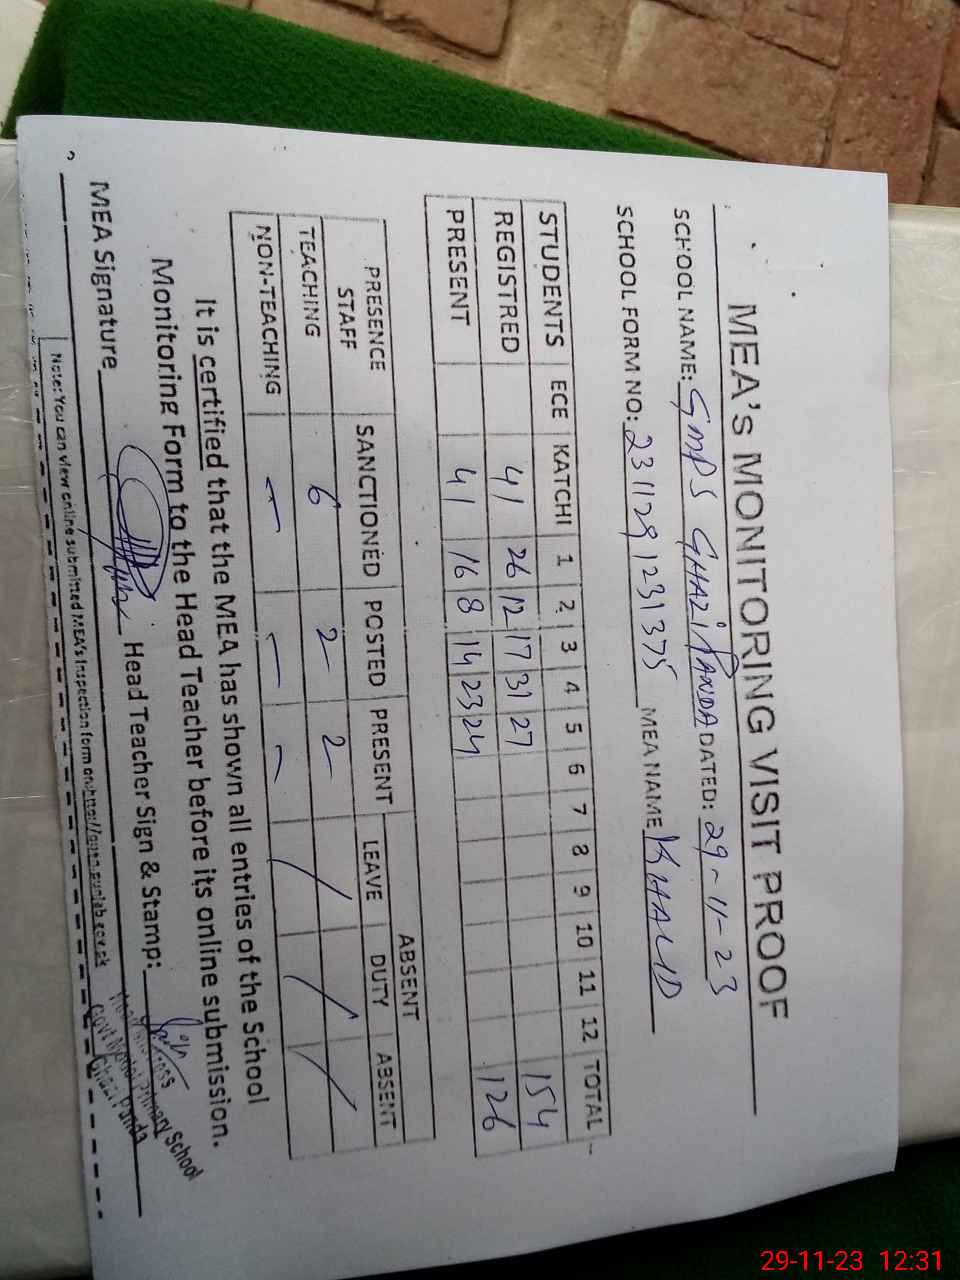 MEA's MONITORING VISIT PROOF
SCHOOL NAME: GMPS GHAZI PANDA DATED: 29-11-23
SCHOOL FORM NO: 2311291231375 MEA NAME KHALID
STUDENTS ECE KATCHI 1 2 3 4 5 6 7 8 9 10 11 12 TOTAL
REGISTRED 41 26 12 17 31 27 154
PRESENT 41 16 8 14 23 24 126
PRESENCE STAFF SANCTIONED POSTED PRESENT ABSENT
LEAVE DUTY ABSENT
TEACHING 6 2 2
NON-TEACHING - - -
It is certified that the MEA has shown all entries of the School
Monitoring Form to the Head Teacher before its online submission.
MEA Signature Head Teacher Sign & Stamp:
Govt Model Primary School
Ghazi Panda
Note: You can view online submitted MEA's Inspection form on
29-11-23 12:31